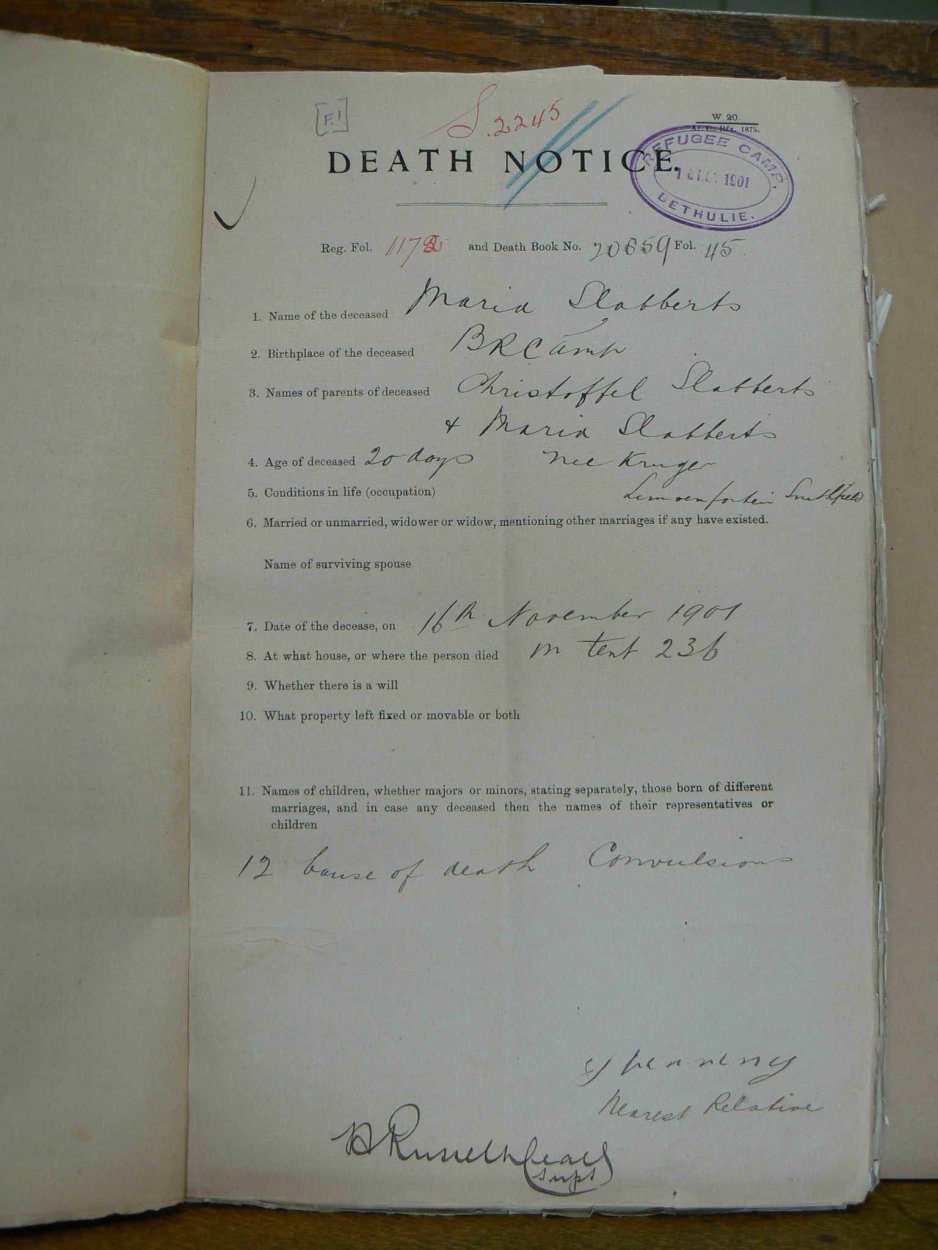 [F.1]
S. 2245
W 20
DEATH NOTICE.
REFUGEE CAMP,
1901
BETHULIE.
Reg. Fol. and Death Book No. 20659 Fol. 45.
1. Name of the deceased Maria Slabberts
2. Birthplace of the deceased BRCamp
3. Names of parents of deceased Christoffel Slabberts
& Maria Slabberts
4. Age of deceased 20 days nee Kruger
5. Conditions in life (occupation) Smithfield
6. Married or unmarried, widower or widow, mentioning other marriages if any have existed.
Name of surviving spouse
7. Date of the decease, on 16th November 1901
8. At what house, or where the person died in Tent 236
9. Whether there is a will
10. What property left fixed or movable or both
11. Names of children, whether majors or minors, stating separately, those born of different
marriages, and in case any deceased then the names of their representatives or
children
12 Cause of death Convulsions
Nearest Relative
Supt